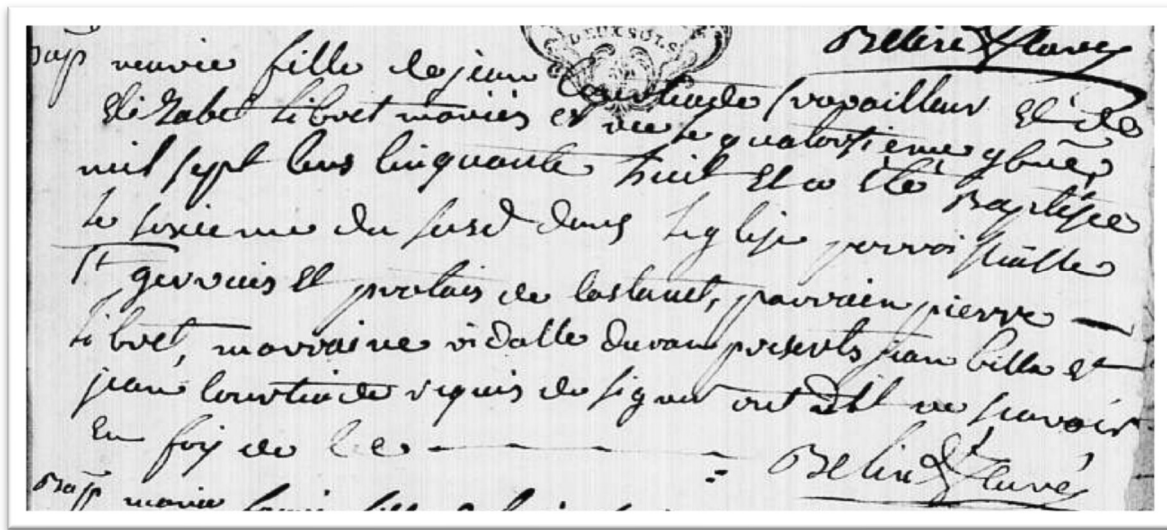 DEUX SOLS
Bap marie fille de jean Courtiade travailleur et de
Elizabet Libret mariés est née le quatorsieme 9bre
mil sept cens cinquante huit et a été Baptisée
le sixieme du susd dans leglise parroissialle
St gervais et protais de Castanet, parrein pierre
Libret, marraine vidalle duran presents jean bille et
jean Courtiade requis de signer ont dit ne scavoir
En foy de Ce
Belin Curé
Bap marie fille de